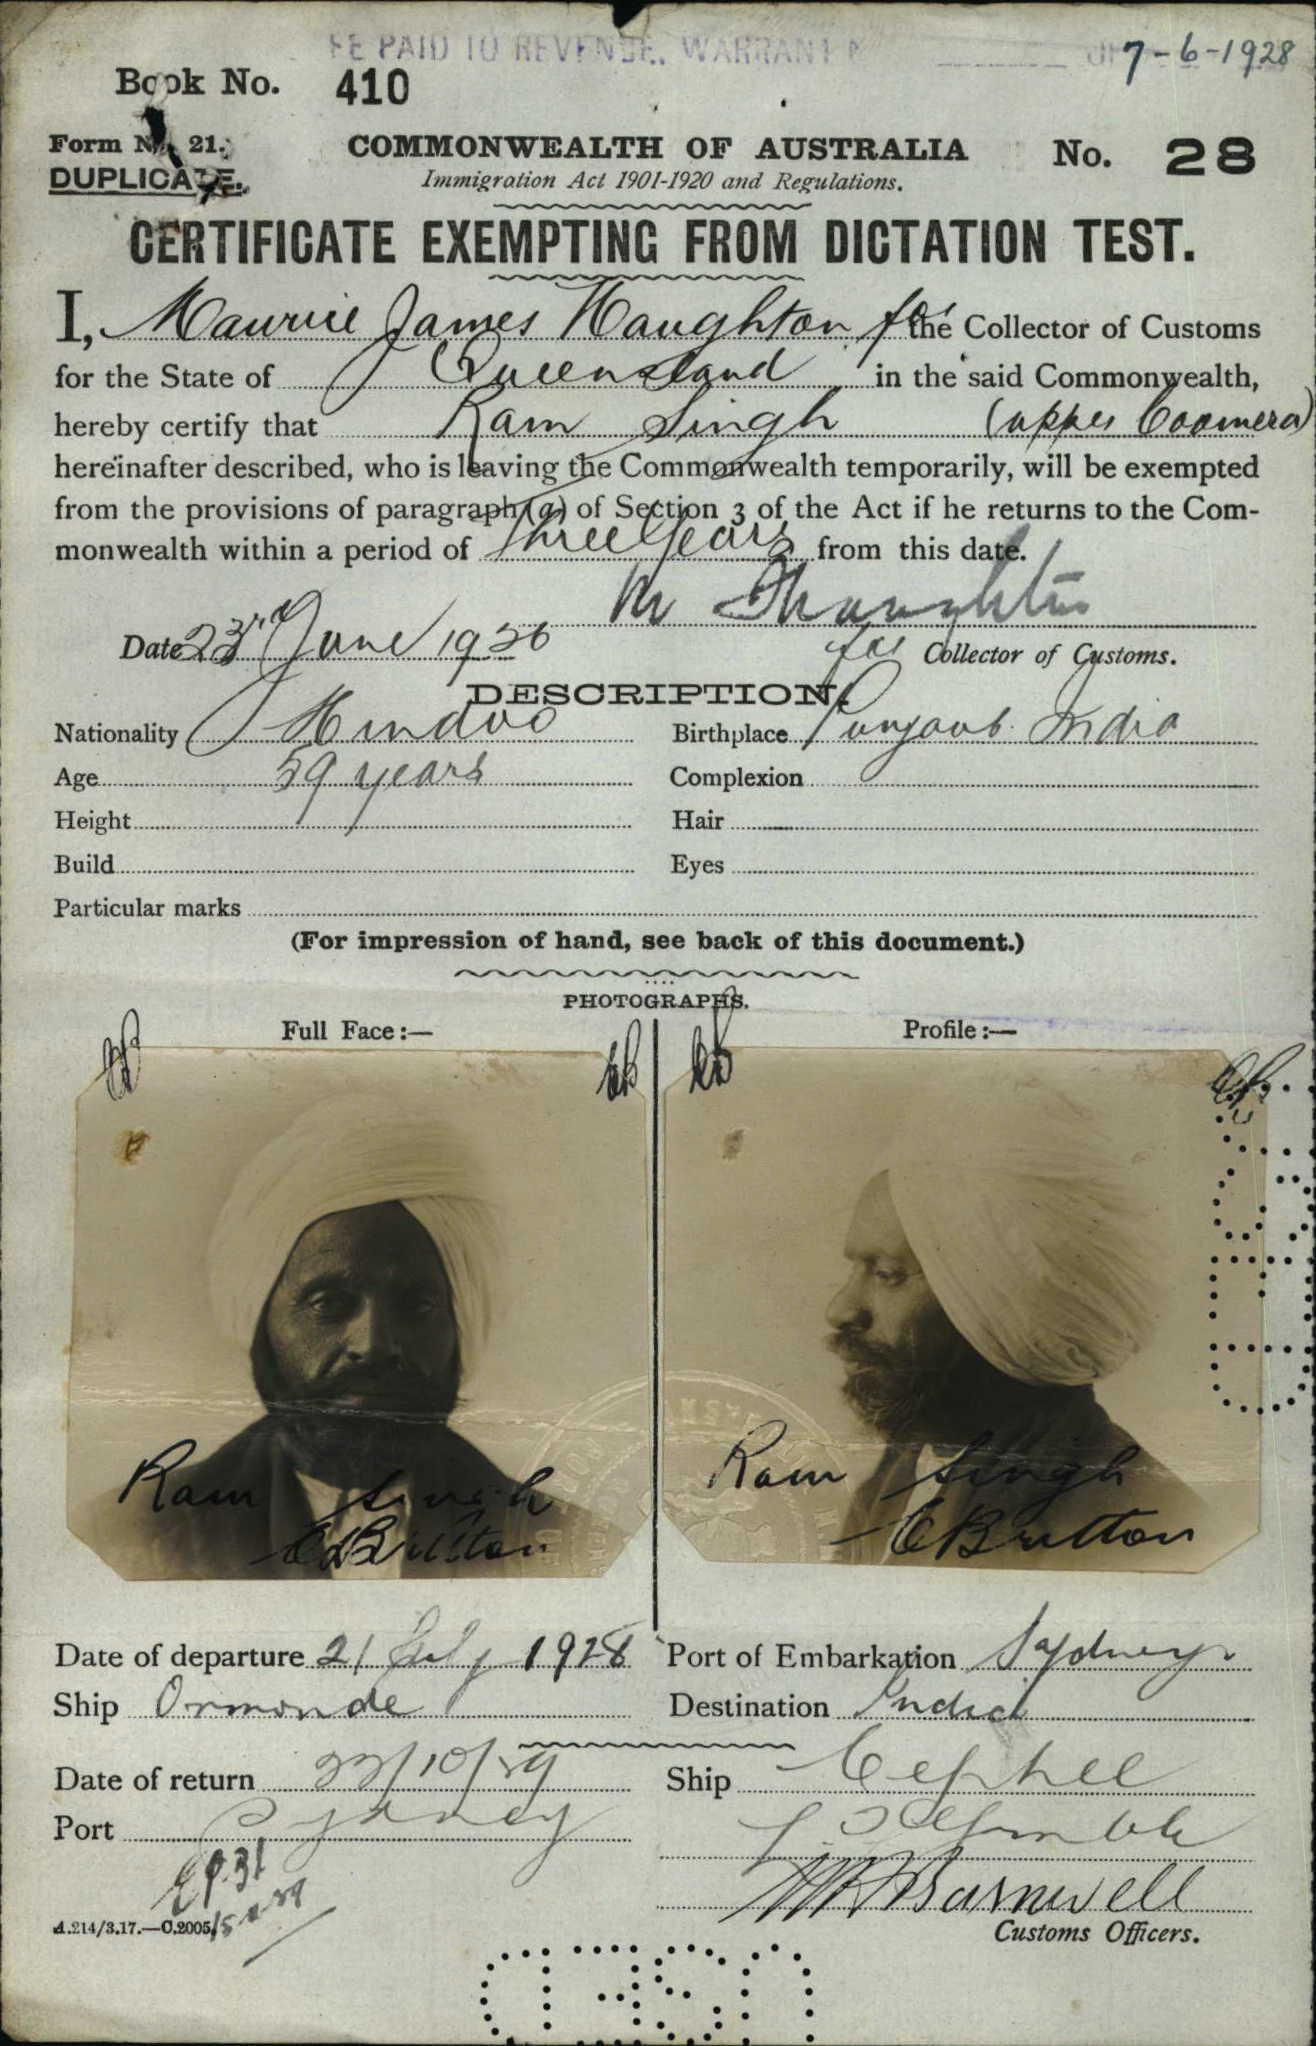 FEE PAID TO REVENUE. WARRANT
7-6-1928
Book No. 410
Form No. 21.
DUPLICATE.
COMMONWEALTH OF AUSTRALIA
No. 28
Immigration Act 1901-1920 and Regulations.
CERTIFICATE EXEMPTING FROM DICTATION TEST.
I, Maurice James Haughton for the Collector of Customs
for the State of Queensland in the said Commonwealth,
hereby certify that Ram Singh (upper Coomera)
hereinafter described, who is leaving the Commonwealth temporarily, will be exempted
from the provisions of paragraph (a) of Section 3 of the Act if he returns to the Com-
monwealth within a period of three years from this date.
M J Haughton
Date 23rd June 1926
for Collector of Customs.
DESCRIPTION.
Nationality Hindoo Birthplace Punjaub India
Age 59 years Complexion
Height Hair
Build Eyes
Particular marks
(For impression of hand, see back of this document.)
PHOTOGRAPHS.
Full Face:— Profile:—
Ram Singh
E Britton
Ram Singh
E Britton
Date of departure 21 July 1928 Port of Embarkation Sydney
Ship Ormonde Destination India
Date of return 22/10/29 Ship Cephee
Port Sydney
EP.31
Barnwell
A.214/3.17.—C.2005.
Customs Officers.
USED